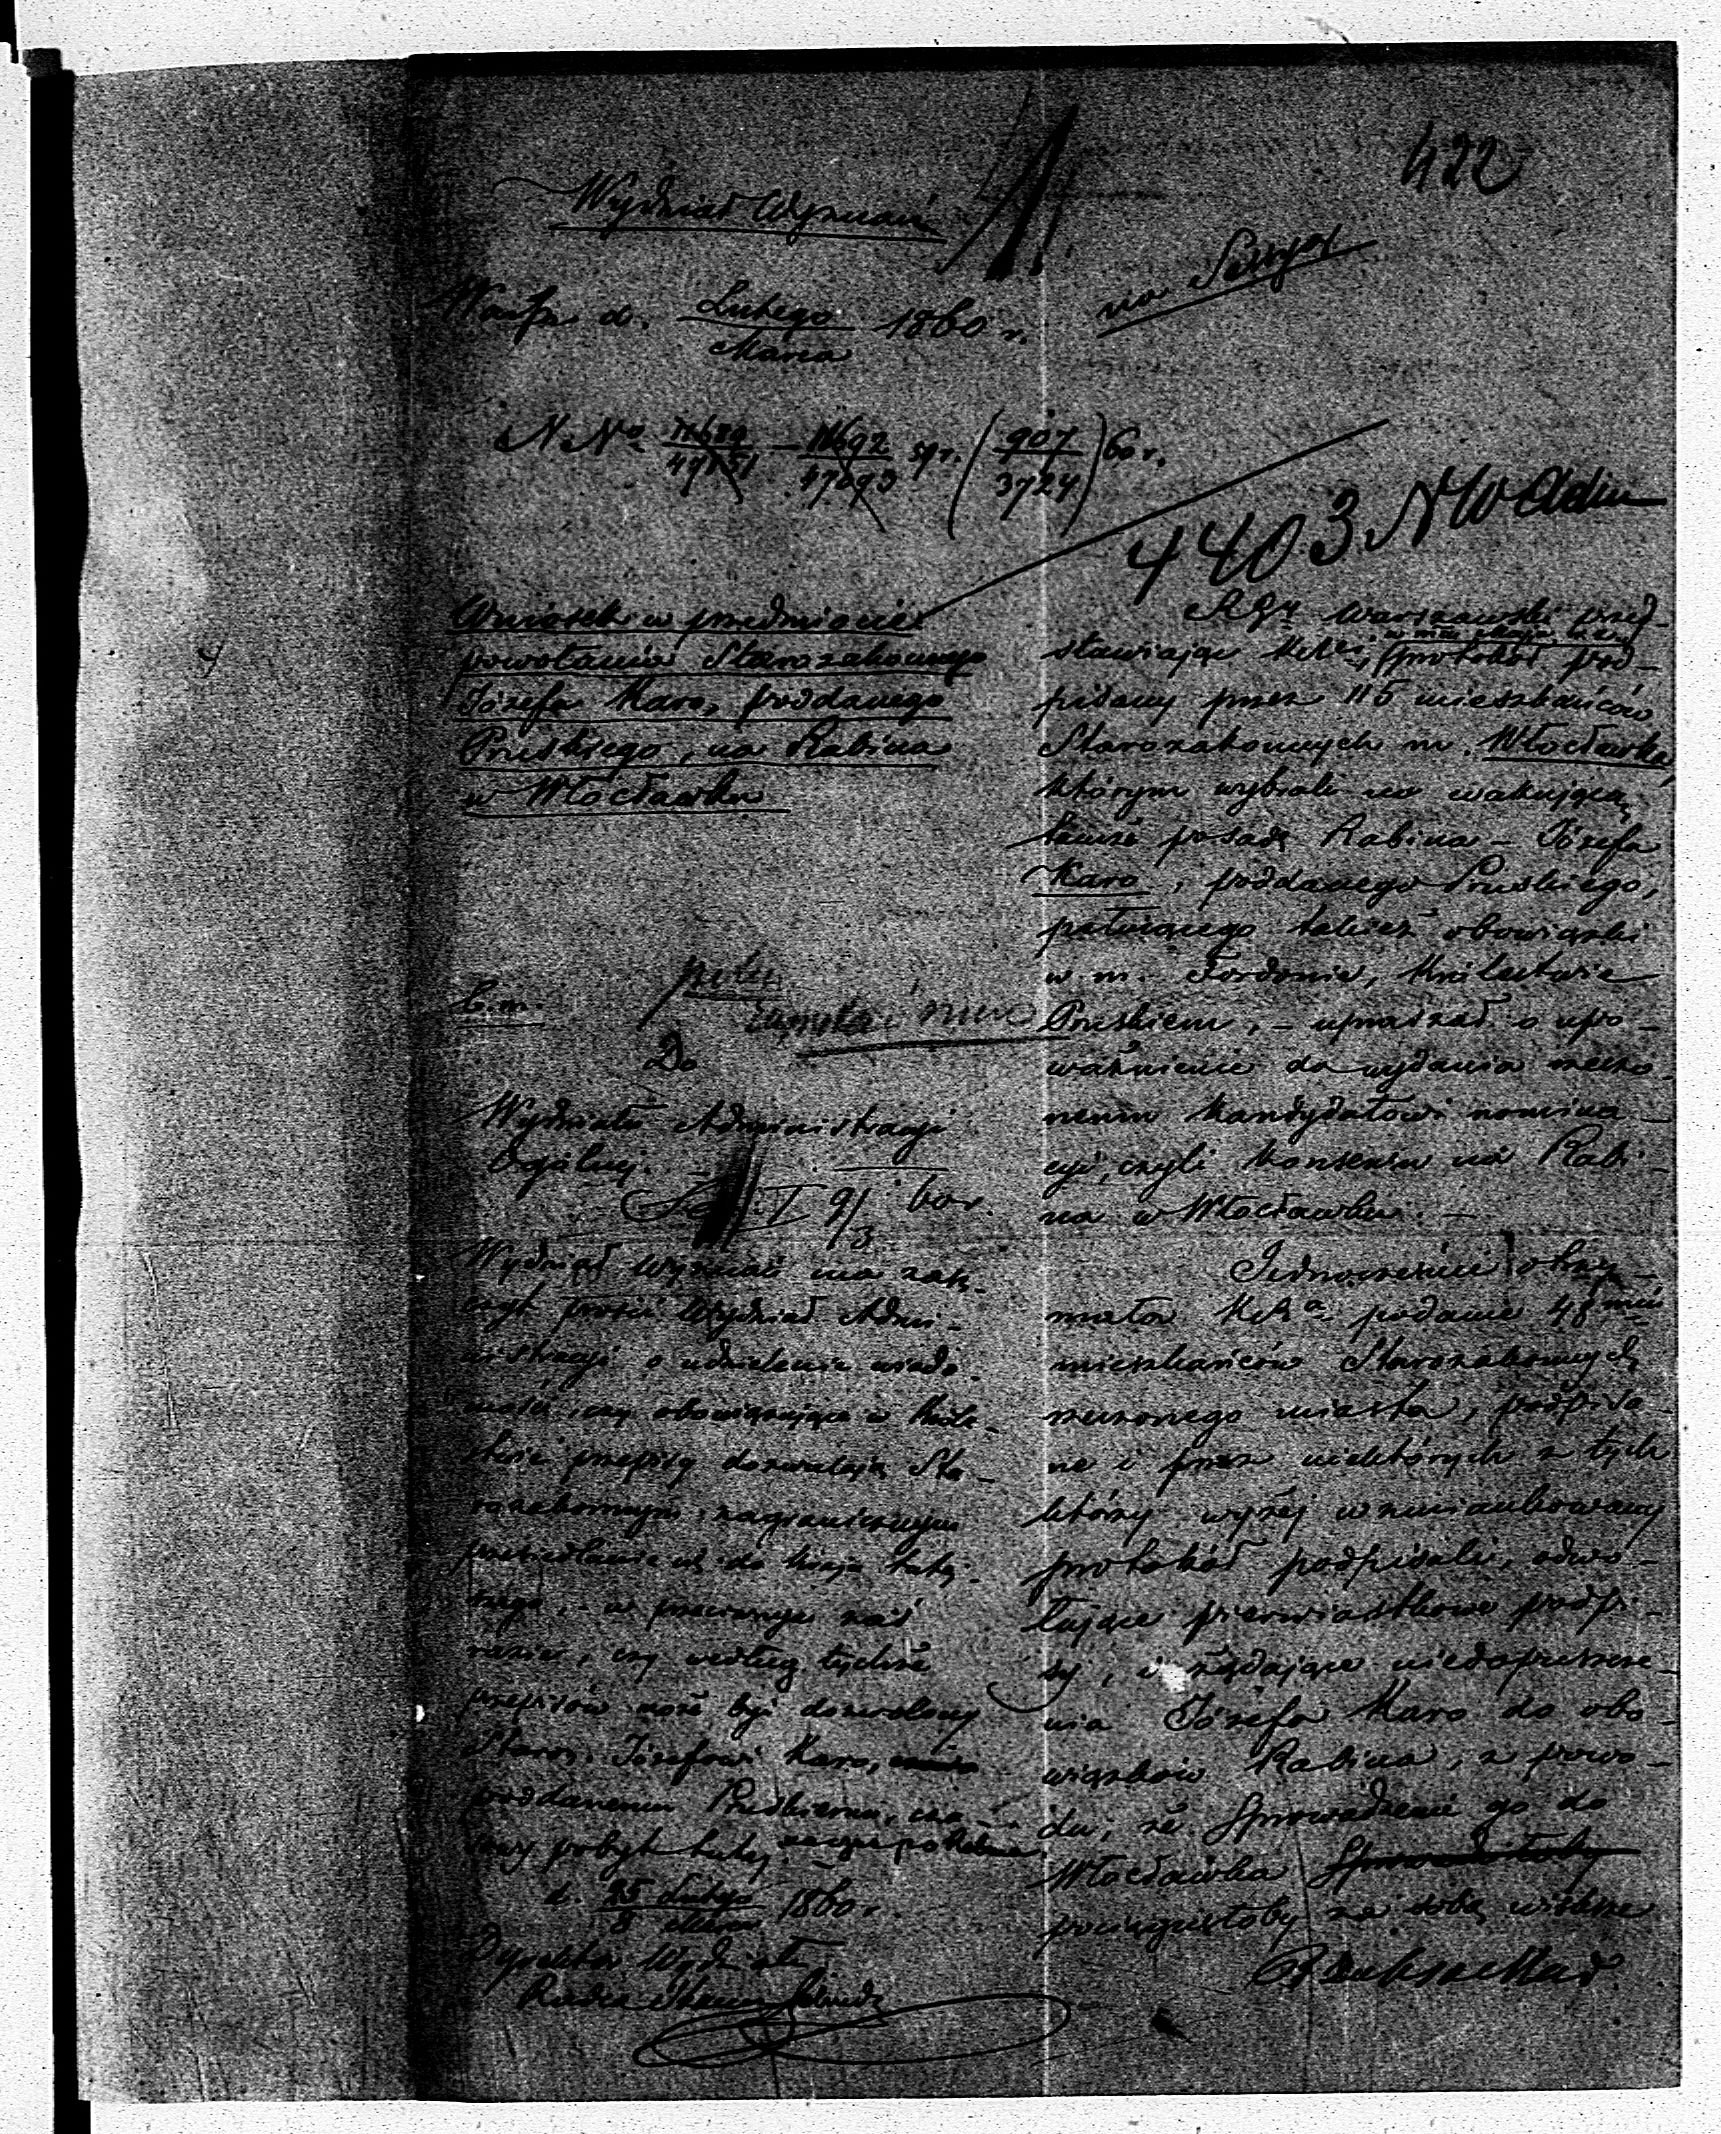 422
Wydział Wyznań
na Sessyą
d. Lutego 1860 r.
Marca
N. No 907 60 r.
3724
4403 N W Adm
Wniosek w przedmiocie
powołania Starozakonnego
Józefa Karo, poddanego
Pruskiego, na Rabina
w Włocławku
Do
Wydziału Administracji
Ogólnej. –
9/3 60 r.
Wydział Wyznań ma zasz-
czyt prosić Wydział Admi-
nistracji o udzielenie wiado-
mości, czy obowiązujące w Króle-
stwie przepisy dozwalają Sta-
rozakonnym zagranicznym
przesiedlanie się do kraju tutej-
szego, – w przeciwnym zaś
razie, czy według tychże
przepisów może być dozwolony
Staroz. Józefowi Karo,
poddanemu Pruskiemu,
pobyt tutej.
d. 25 Lutego 1860 r.
8 Marca
Dyrektor Wydziału
Radca Stanu
R Gu Warszawski przed-
stawiając protokół pod-
pisany przez 115 mieszkańców
Starozakonnych m. Włocławka,
którym wybrali na wakującą
tamże posadę Rabina – Józefa
Karo, poddanego Pruskiego,
pełniącego takież obowiązki
w m. Fordonie, Królestwie
Pruskiem, – upraszał o upo-
ważnienie do wydania rzeczo-
nemu Kandydatowi nomina-
cyi, czyli konsensu na Rabi-
na w Włocławku. –
Jednocześnie otrzy-
mała podanie 48miu
mieszkańców Starozakonnych
rzeczonego miasta, podpisa-
ne i przez niektórych z tych
którzy wyżej wzmiankowany
protokół podpisali, odwo-
łujące pierwiastkowe podpi-
sy, i żądające niedopuszcze-
nia Józefa Karo do obo-
wiązków Rabina, z powo-
du, że sprowadzenie go do
Włocławka
pociągnęłoby za sobą